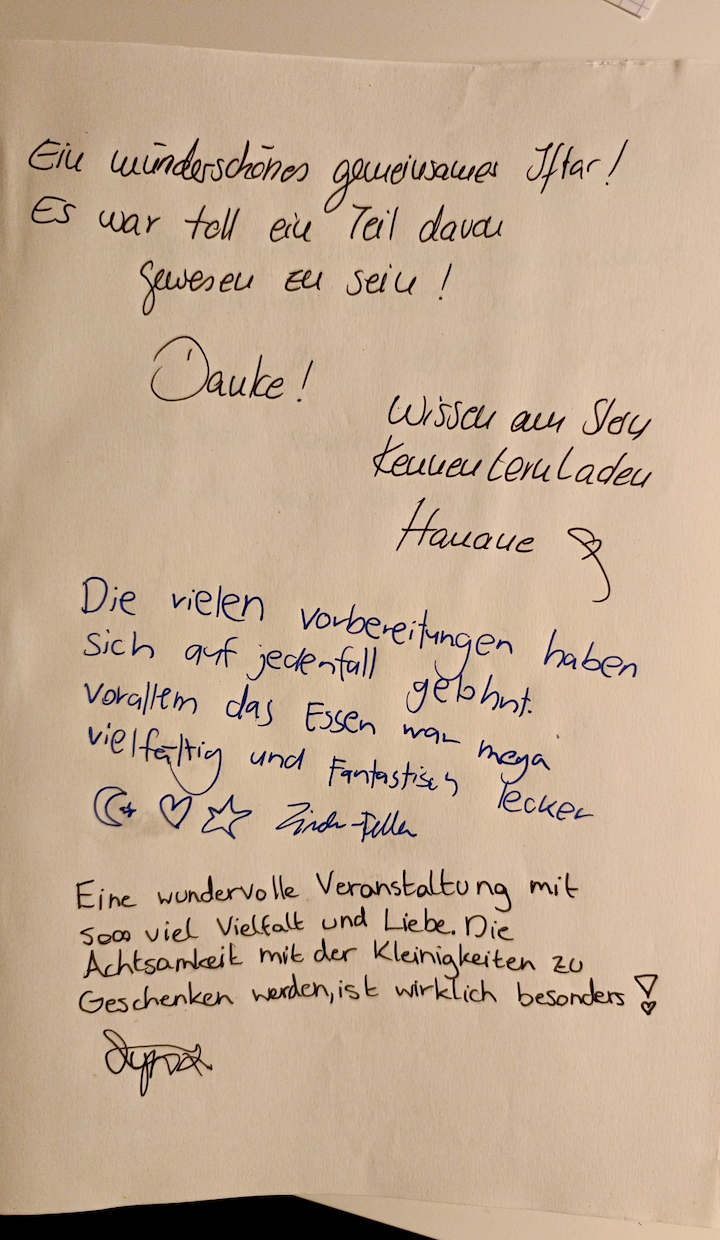 Ein wünderschönes gemeinsames Iftar!
Es war toll ein Teil davon
gewesen zu sein!
Danke!
Wissen am
KennenLernLaden
Hanane
Die vielen vorbereitungen haben
sich auf jedenfall gelohnt.
vorallem das Essen war mega
vielfältig und Fantastisch lecker
Eine wundervolle Veranstaltung mit
sooo viel Vielfalt und Liebe. Die
Achtsamkeit mit der Kleinigkeiten zu
Geschenken werden, ist wirklich besonders!